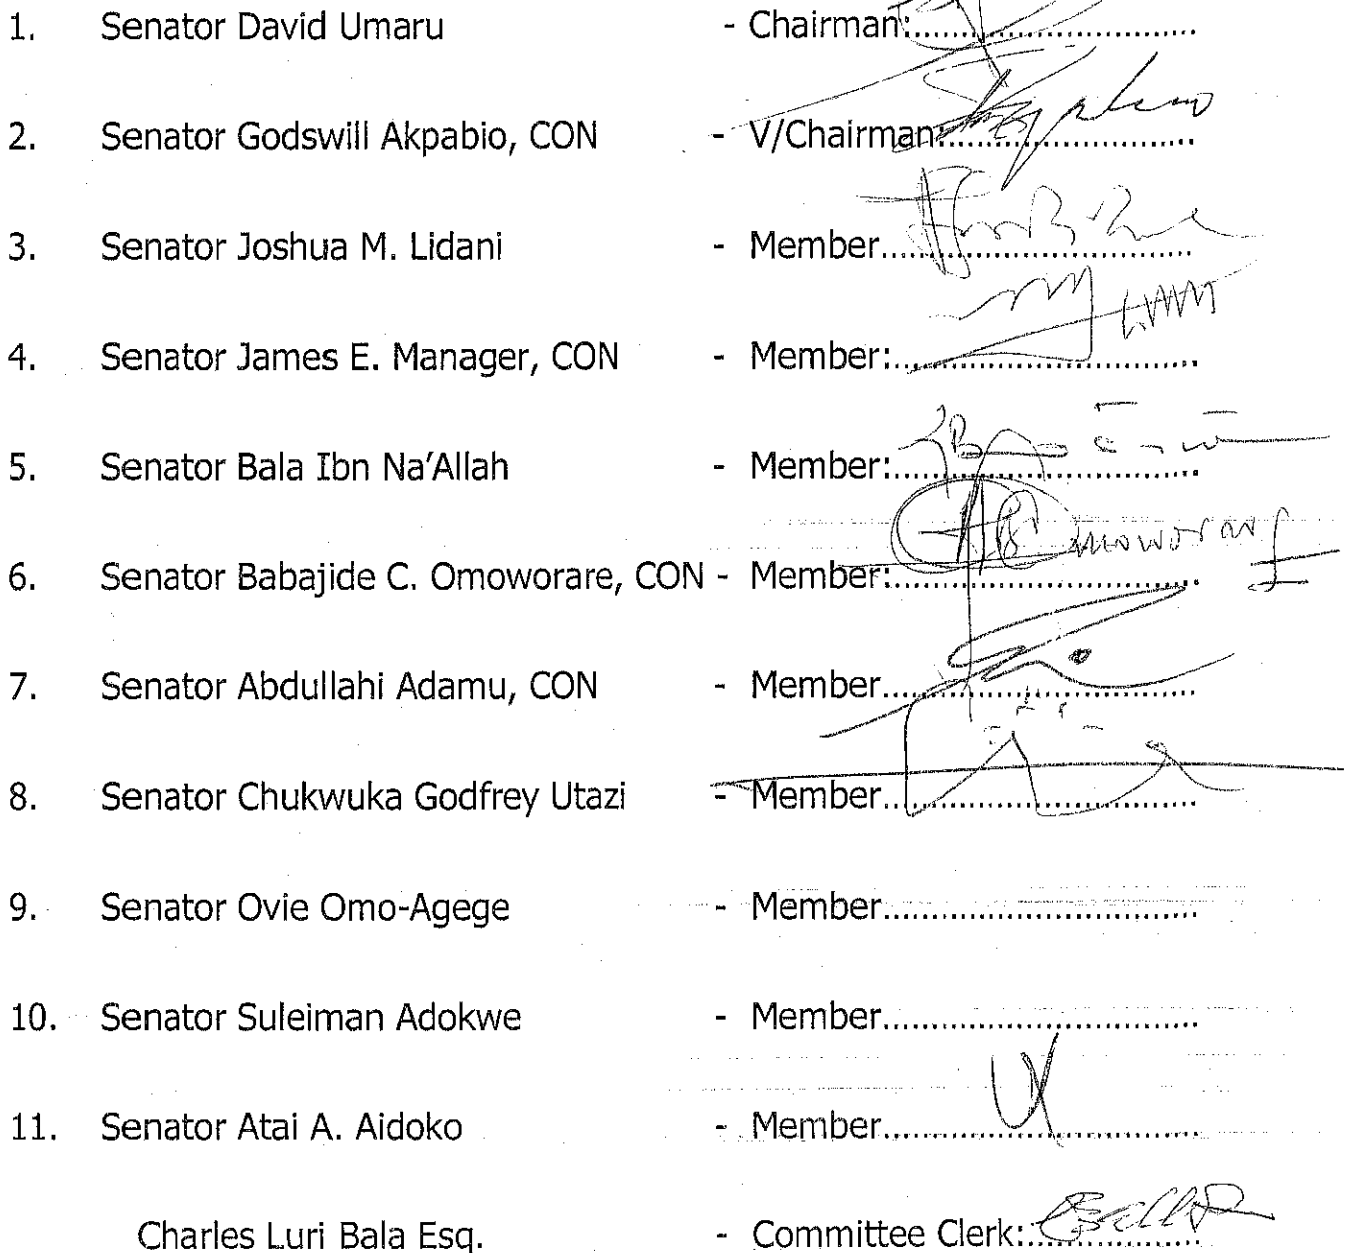 1. Senator David Umaru - Chairman:..............................
2. Senator Godswill Akpabio, CON - V/Chairman:..........................
3. Senator Joshua M. Lidani - Member.................................
4. Senator James E. Manager, CON - Member:................................
5. Senator Bala Ibn Na'Allah - Member:................................
6. Senator Babajide C. Omoworare, CON - Member:................................
7. Senator Abdullahi Adamu, CON - Member.................................
8. Senator Chukwuka Godfrey Utazi - Member.................................
9. Senator Ovie Omo-Agege - Member.................................
10. Senator Suleiman Adokwe - Member.................................
11. Senator Atai A. Aidoko - Member.................................
Charles Luri Bala Esq. - Committee Clerk:.................